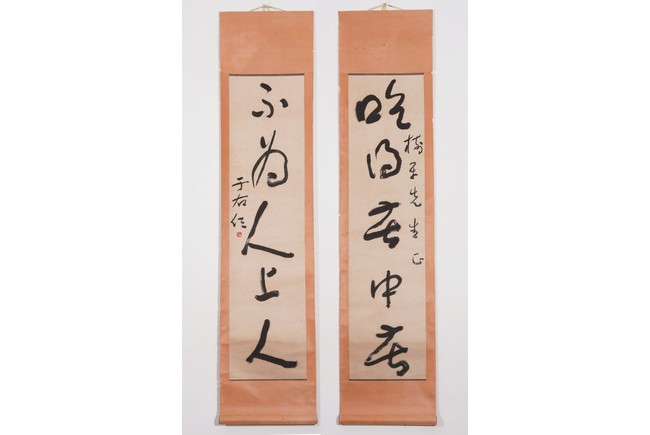 吃得苦中苦
先生正
不为人上人
于右任